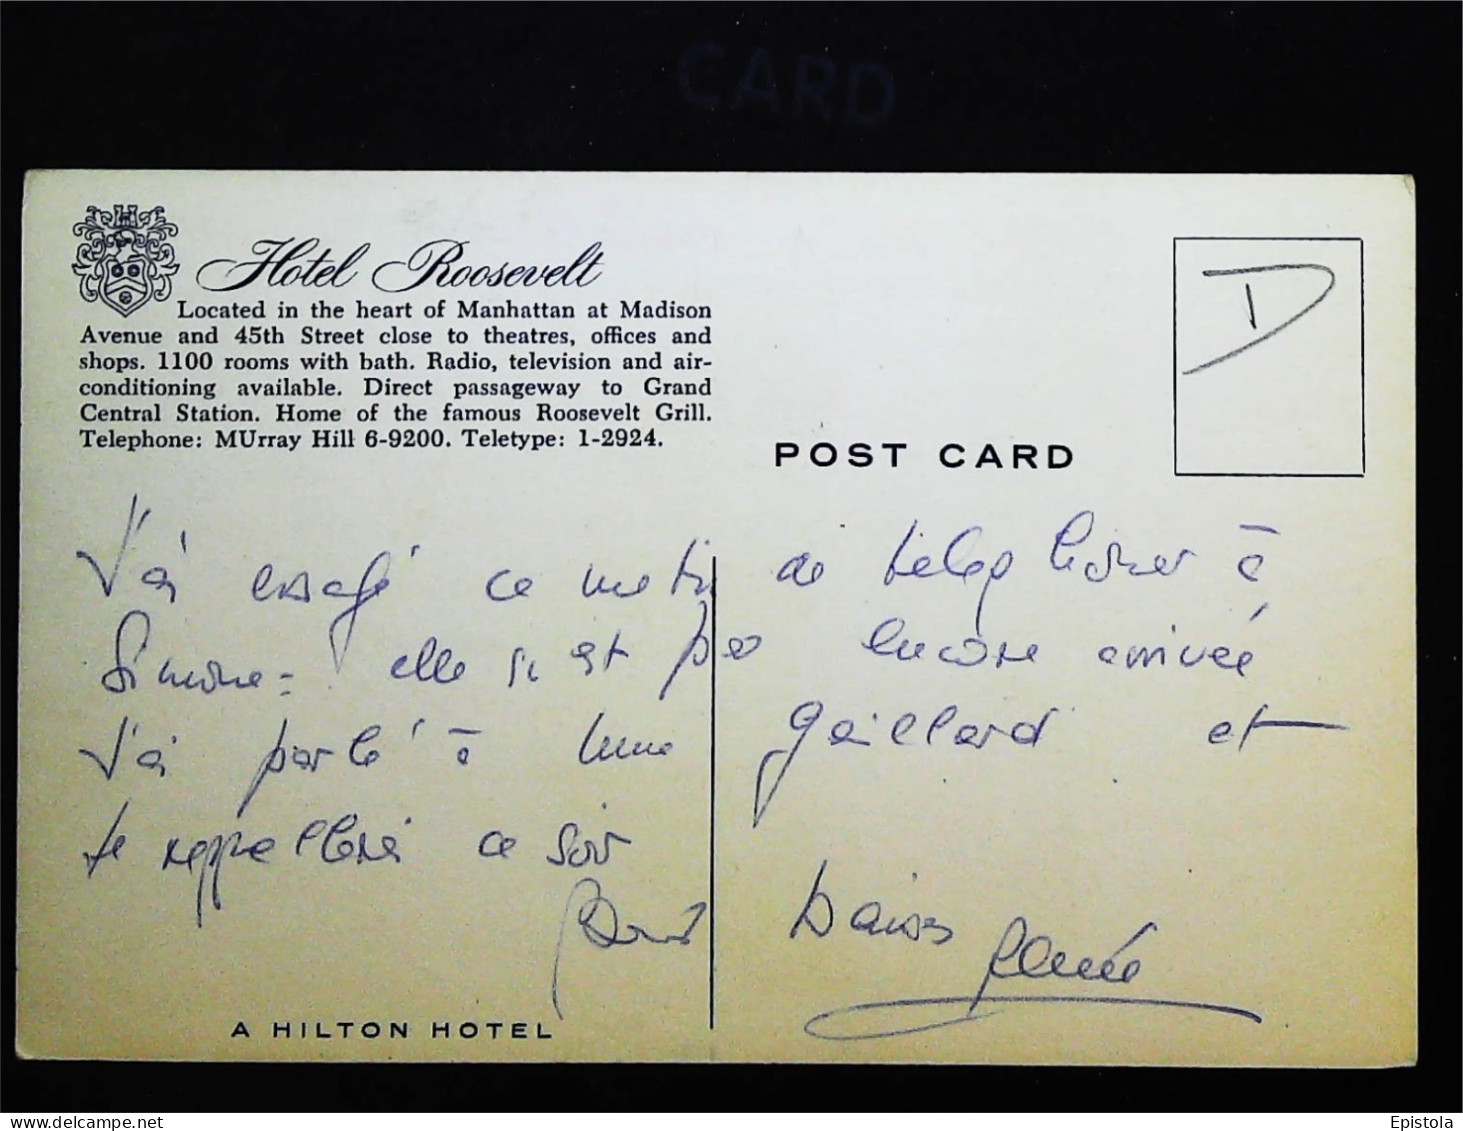 CARD
Hotel Roosevelt
Located in the heart of Manhattan at Madison
Avenue and 45th Street close to theatres, offices and
shops. 1100 rooms with bath. Radio, television and air-
conditioning available. Direct passageway to Grand
Central Station. Home of the famous Roosevelt Grill.
Telephone: MUrray Hill 6-9200. Teletype: 1-2924.
POST CARD
D
J'ai essayé ce matin de telephoner à
Simone - elle n'est pas encore arrivée
J'ai parlé à Gaillard et
te rappellerai ce soir
Baisers
Renée
A HILTON HOTEL
Epistola